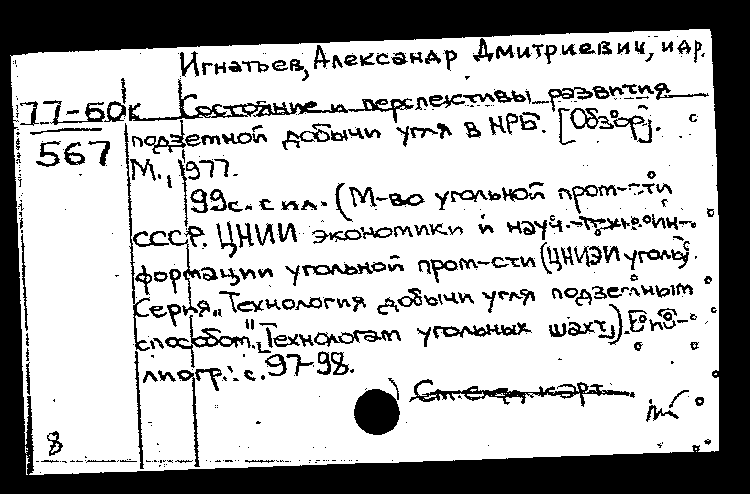 Игнатьев, Александр Дмитриевич, и др.
77-60к
567
Состояние и перспективы развития
подземной добычи угля в НРБ. [Обзор].
М., 1977.
99с. с ил. (М-во угольной пром-сти
СССР. ЦНИИ экономики и науч.-техн. ин-
формации угольной пром-сти (ЦНИЭИуголь).
Серия "Технология добычи угля подземным
способом", "Технологам угольных шахт"). Биб-
лиогр.: с. 97-98.
См. след. карт.
8